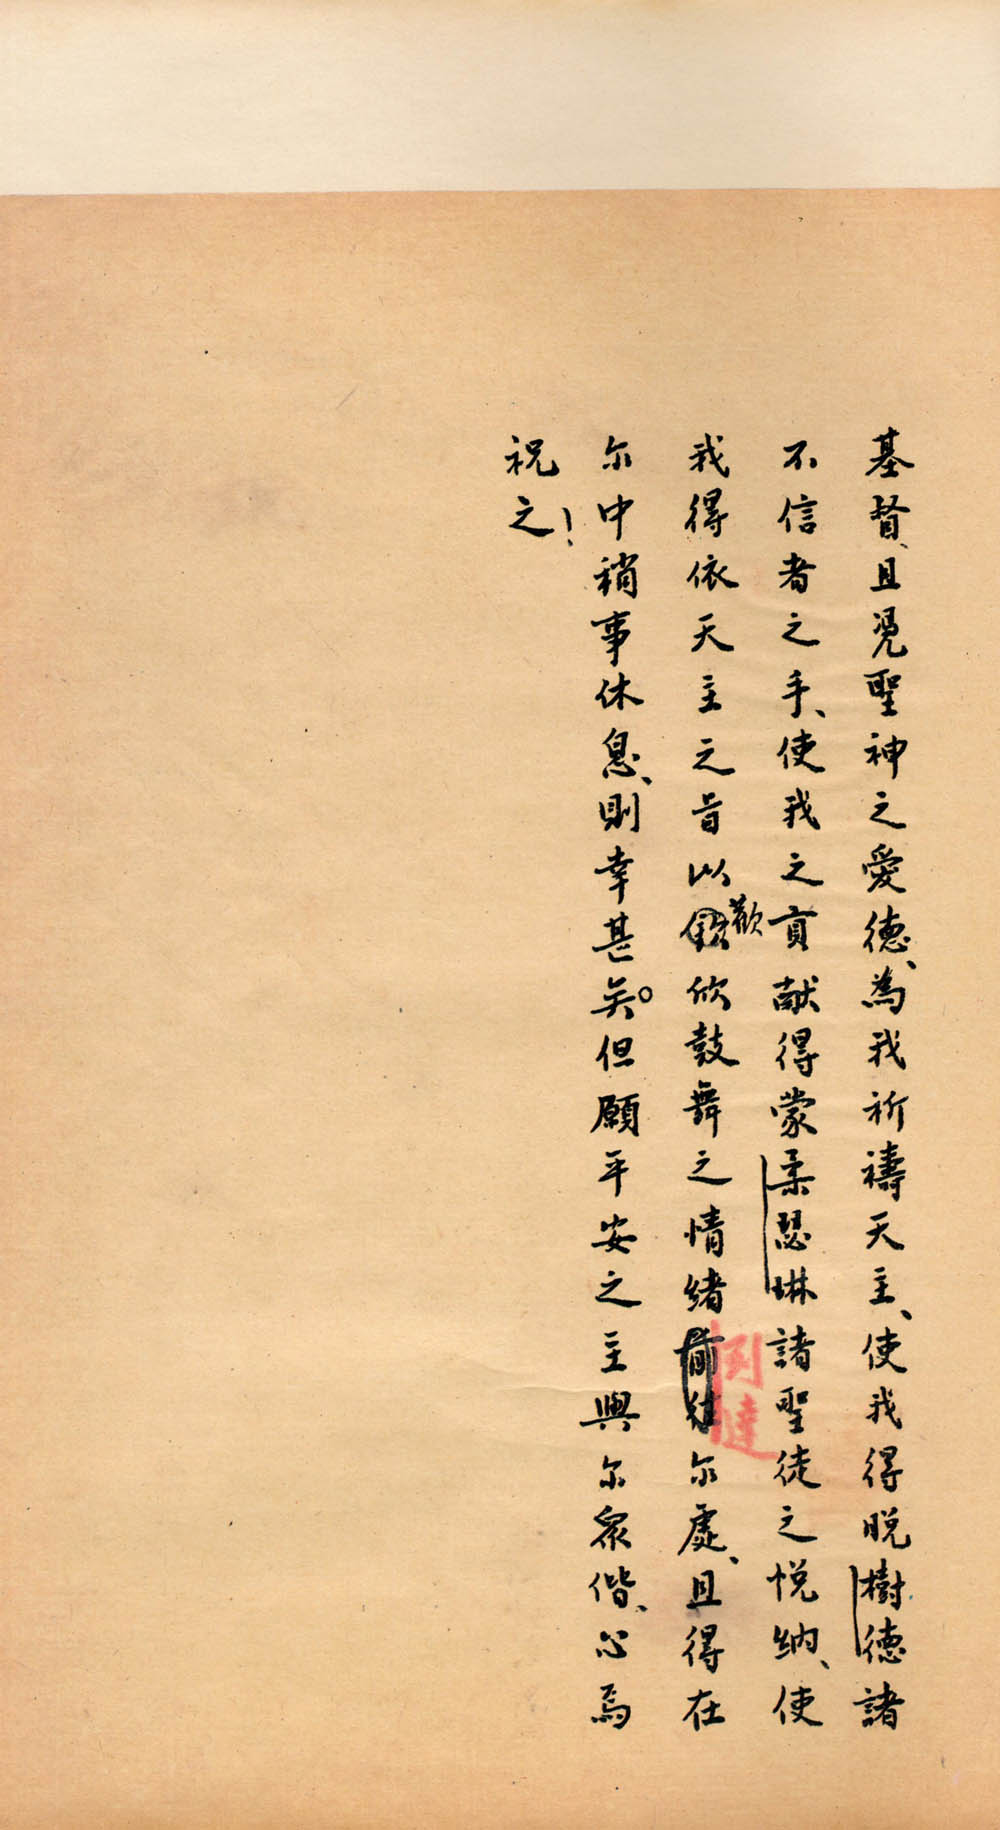 基督、且凴聖神之愛德、為我祈禱天主、使我得脫樹德諸
不信者之手、使我之貢献得蒙柔瑟琳諸聖徒之悅納、使
我得依天主之旨以歡欣鼓舞之情緒到達尔處、且得在
尔中稍事休息、則幸甚矣。但願平安之主與尔衆偕、心焉
祝之！